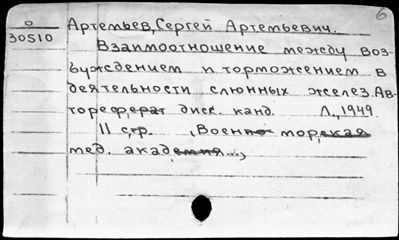 6
0
30510
Артемьев, Сергей Артемьевич.
Взаимоотношение между воз-
буждением и торможением в
деятельности слюнных желез. Ав-
тореферат дисс. канд. Л., 1949.
11 стр. (Военно морская
мед. академия...)